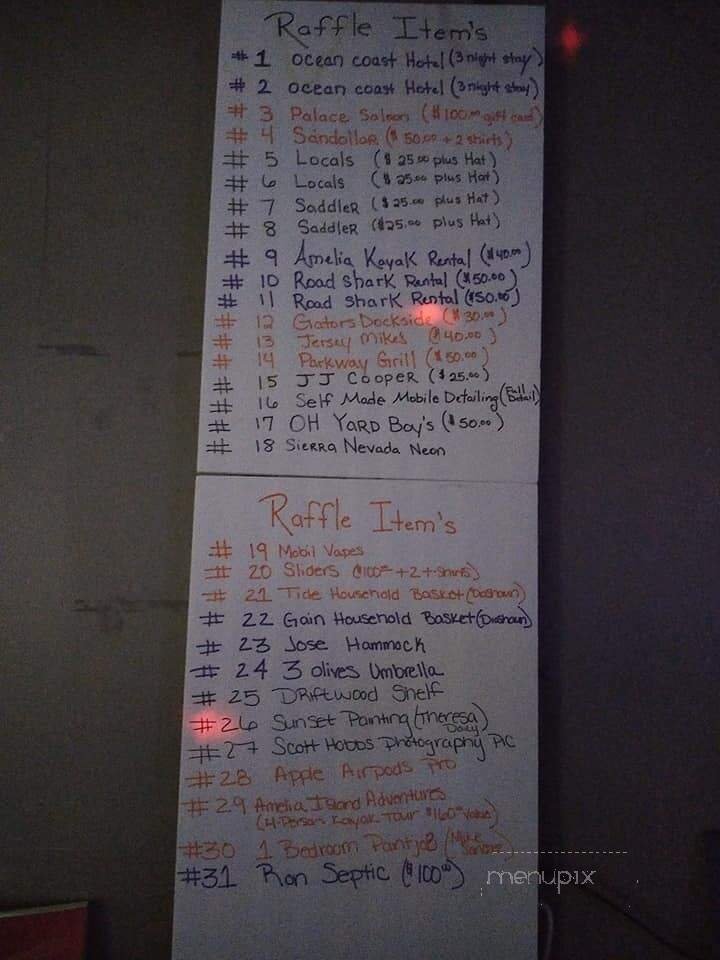 Raffle Item's
# 1 Ocean Coast Hotel (3 night stay)
# 2 Ocean Coast Hotel (3 night stay)
# 3 Palace Saloon ($100.00 gift card)
# 4 Sandollar ($50.00 + 2 shirts)
# 5 Locals ($25.00 plus Hat)
# 6 Locals ($25.00 plus Hat)
# 7 Saddler ($25.00 plus Hat)
# 8 Saddler ($25.00 plus Hat)
# 9 Amelia Kayak Rental ($40.00)
# 10 Road shark Rental ($50.00)
# 11 Road shark Rental ($50.00)
# 12 Gators Dockside ($30.00)
# 13 Jersey Mikes ($40.00)
# 14 Parkway Grill ($50.00)
# 15 JJ Cooper ($25.00)
# 16 Self Made Mobile Detailing (Full Detail)
# 17 OH YARD Boy's ($50.00)
# 18 Sierra Nevada Neon
Raffle Item's
# 19 Mobil Vapes
# 20 Sliders ($100.00 + 2 t-shirts)
# 21 Tide Household Basket
# 22 Gain Household Basket
# 23 Jose Hammock
# 24 3 olives Umbrella
# 25 Driftwood Shelf
# 26 Sunset Painting (Theresa Daily)
# 27 Scott Hobbs Photography Pic
# 28 Apple Airpods Pro
# 29 Amelia Island Adventures
(4-Person Kayak Tour $160.00 Value)
#30 1 Bedroom Paintjob (Mike
#31 Ron Septic ($100.00)
menupix